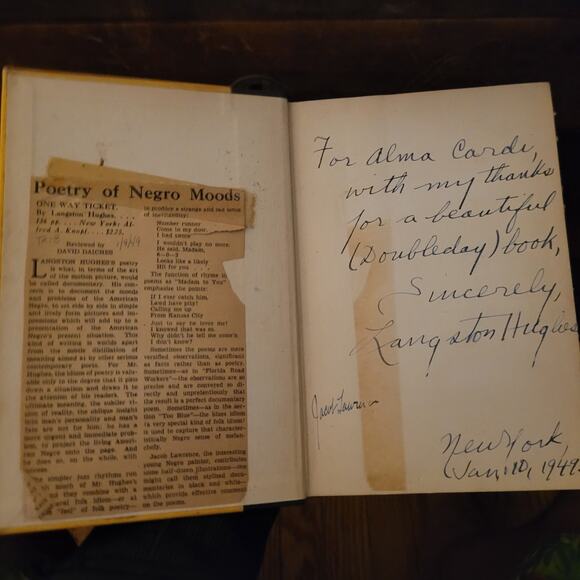 Poetry of Negro Moods
ONE WAY TICKET.
By Langston Hughes. . . .
136 pp. . . . New York: Al-
fred A. Knopf. . . . $2.75.
Reviewed by
DAVID DAICHES
LANGSTON HUGHES'S poetry
is what, in terms of the art
of the motion picture, would
be called documentary. His con-
cern is to document the moods
and problems of the American
Negro, to set side by side in simple
and lively form pictures and im-
pressions which will add up to a
presentation of the American
Negro's present situation. This
kind of writing is worlds apart
from the subtle distillation of
meaning aimed at by other serious
contemporary poets. For Mr.
Hughes, the idiom of poetry is valu-
able only to the degree that it pins
down a situation and draws it to
the attention of his readers. The
ultimate meaning, the subtler vi-
sion of reality, the oblique insight
into man's personality and man's
fate are not for him; he has a
more urgent and immediate prob-
lem, to project the living Ameri-
can Negro onto the page. And
he does so, on the whole, with
success.
simpler jazz rhythms run
much of Mr. Hughes's
they combine with a
folk idiom—or at
"feel" of folk poetry—
to produce a strange and sad sense
of inevitability:
Number runner
Come to my door.
I had swore
I wouldn't play no more.
He said, Madam,
6-0-2
Looks like a likely
Hit for you
The function of rhyme in
poems as "Madam to You"
emphasize the points:
If I ever catch him,
Lawd have pity!
Calling me up
From Kansas City
Just to say he loves me!
I knowed that was so.
Why didn't he tell me some'n
I don't know?
Sometimes the poems are mere
versified observations, significant
as facts rather than as poetry.
Sometimes—as in "Florida Road
Workers"—the observations are so
precise and are conveyed so di-
rectly and unpretentiously that
the result is a perfect documentary
poem. Sometimes—as in the sec-
tion "Too Blue"—the blues idiom
(a very special kind of folk idiom)
is used to capture that character-
istically Negro sense of melan-
choly.
Jacob Lawrence, the interesting
young Negro painter, contributes
some half-dozen illustrations—one
might call them stylized docu-
mentaries in black and white—
which provide effective comment
on the poems.
For Alma Cardi,
with my thanks
for a beautiful
(Doubleday) book,
Sincerely,
Langston Hughes
Jacob Lawrence
New York,
Jan. 10, 1949.